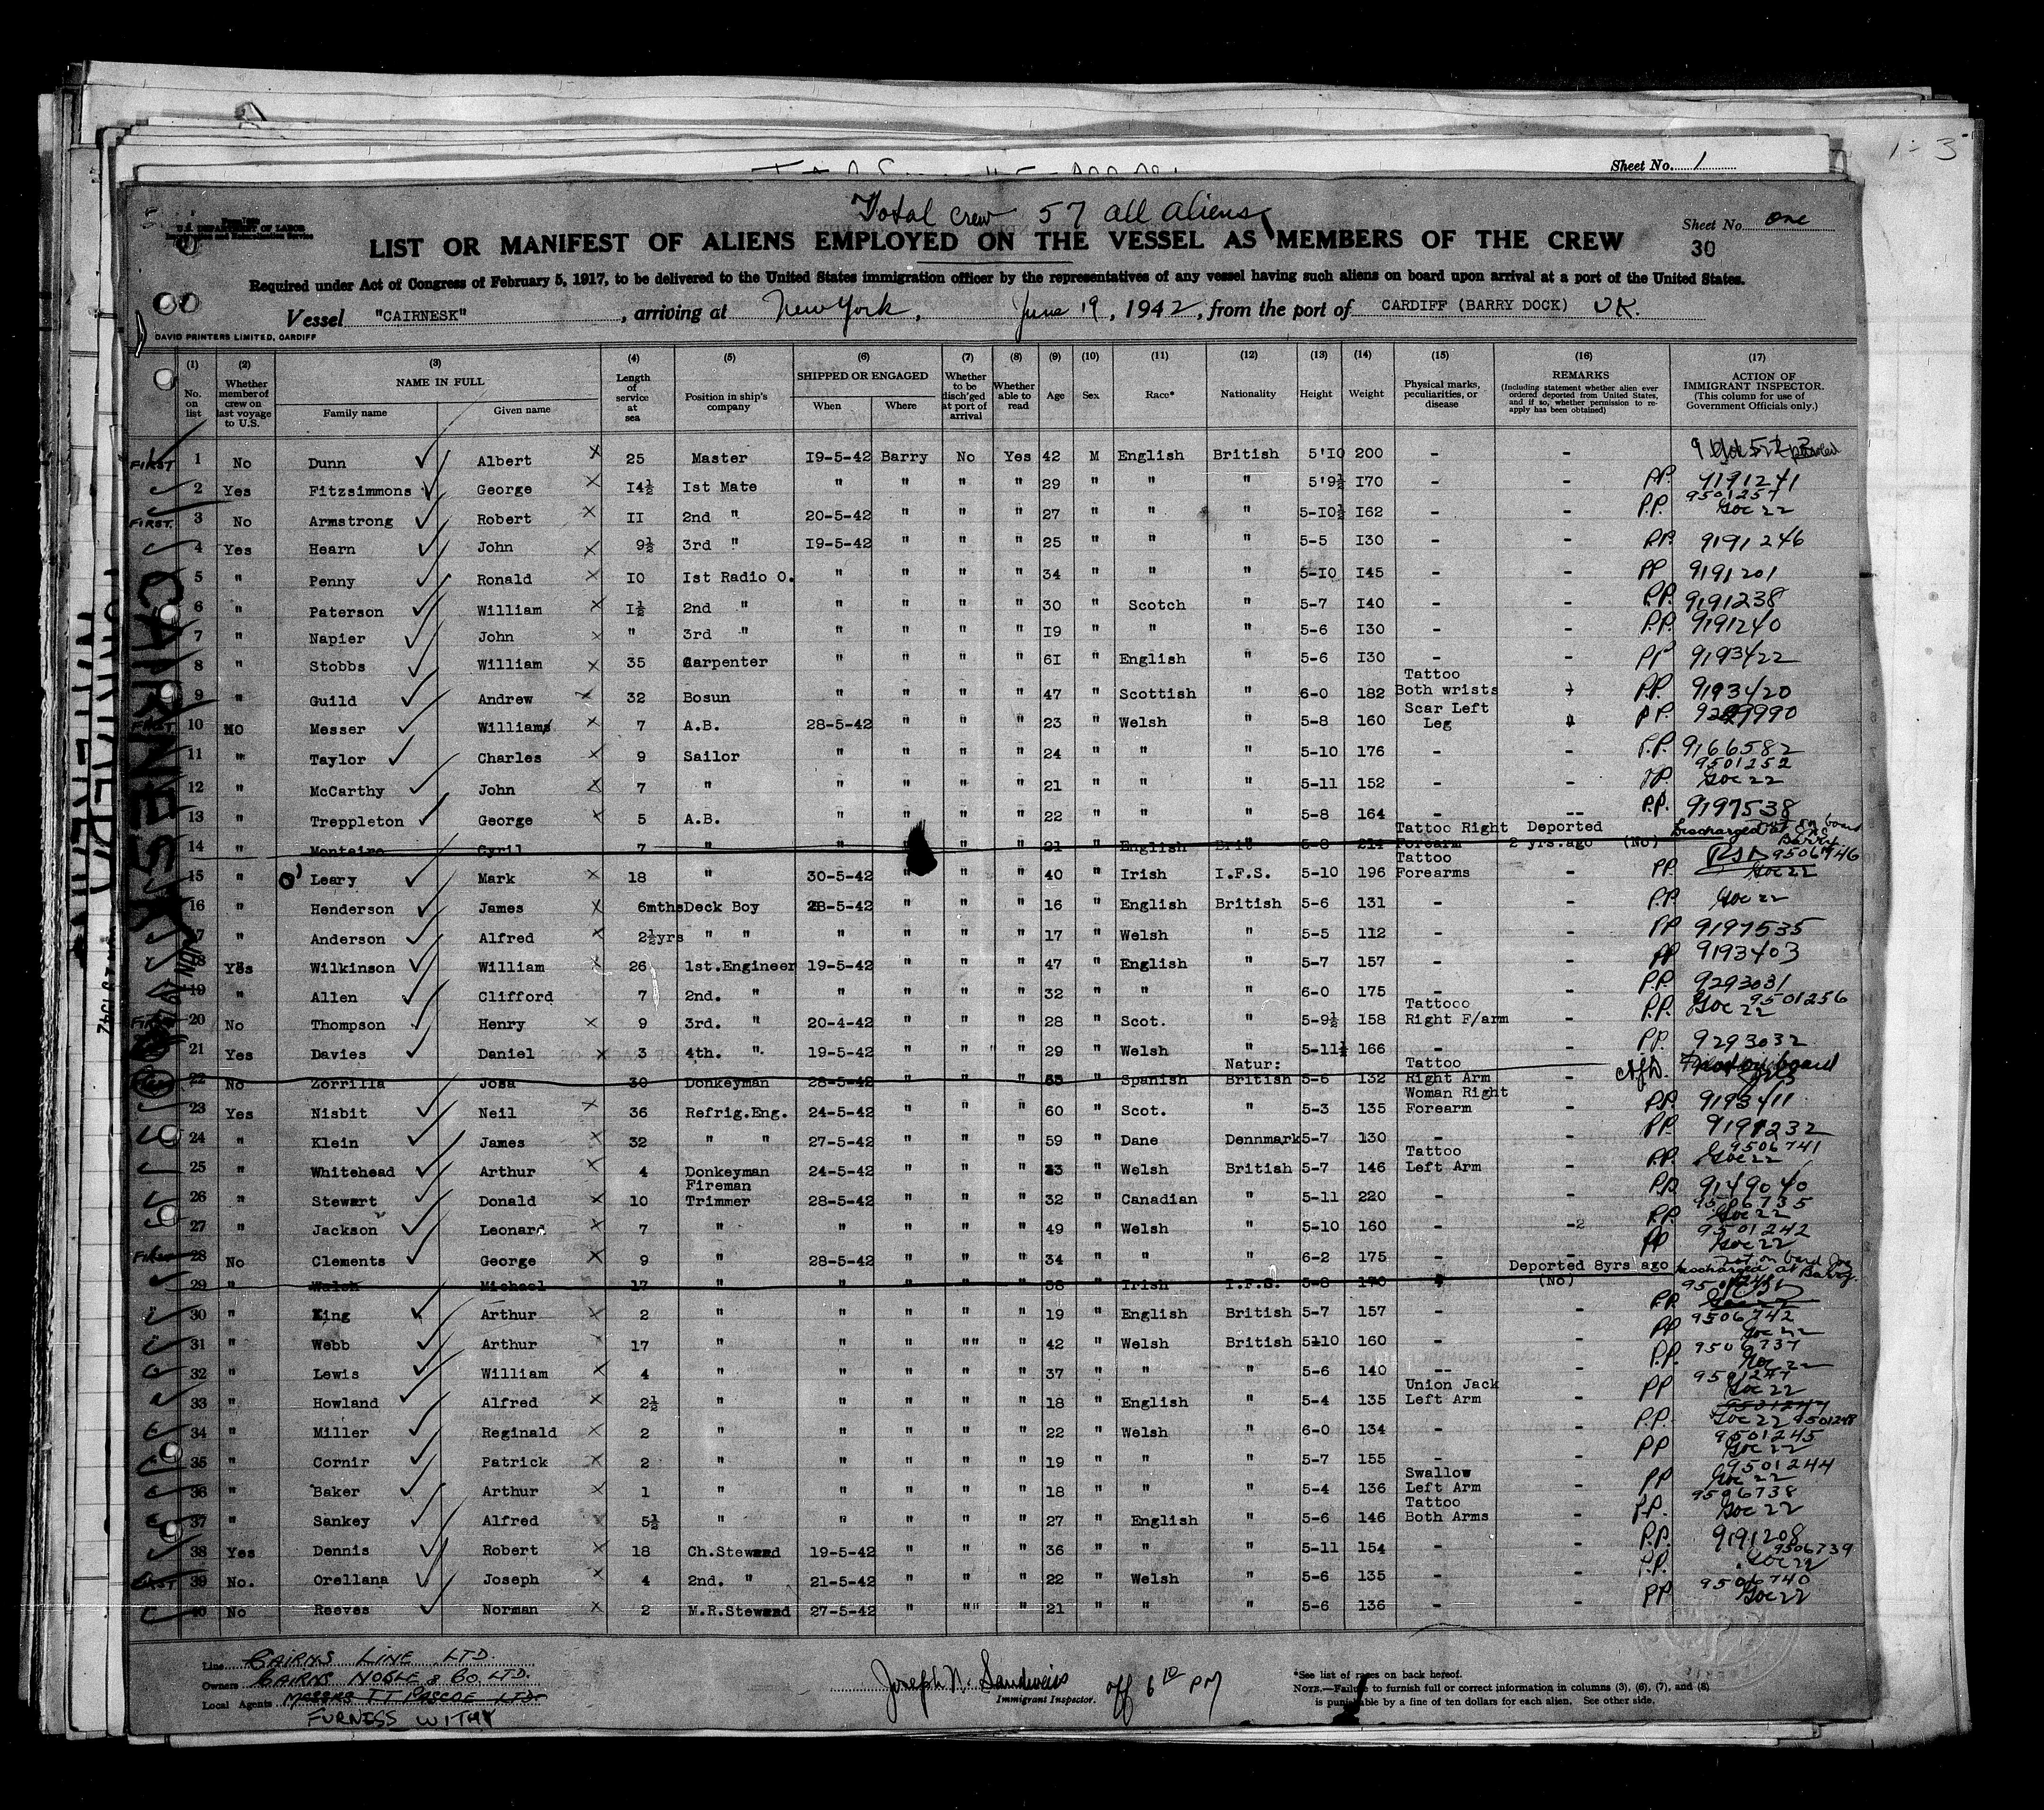 Sheet No. 1
1-3
Total crew 57 all aliens
U.S. DEPARTMENT OF LABOR
Sheet No. one
30
LIST OR MANIFEST OF ALIENS EMPLOYED ON THE VESSEL AS MEMBERS OF THE CREW
Required under Act of Congress of February 5, 1917, to be delivered to the United States immigration officer by the representatives of any vessel having such aliens on board upon arrival at a port of the United States.
Vessel "CAIRNESK", arriving at New York, June 19, 1942, from the port of CARDIFF (BARRY DOCK) UK.
DAVID PRINTERS LIMITED, CARDIFF
(1) (2) (3) (4) (5) (6) (7) (8) (9) (10) (11) (12) (13) (14) (15) (16) (17)
No. on list Whether member of crew on last voyage to U.S. NAME IN FULL Family name Given name Length of service at sea Position in ship's company SHIPPED OR ENGAGED When Where Whether to be disch'ged at port of arrival Whether able to read Age Sex Race* Nationality Height Weight Physical marks, peculiarities, or disease REMARKS (Including statement whether alien ever ordered deported from United States, and if so, whether permission to re-apply has been obtained) ACTION OF IMMIGRANT INSPECTOR. (This column for use of Government Officials only.)
FIRST 1 No Dunn Albert 25 Master 19-5-42 Barry No Yes 42 M English British 5'10 200 - -
2 Yes Fitzsimmons George 14½ 1st Mate " " " " 29 " " " 5'9½ 170 - - PP. 9191241
FIRST. 3 No Armstrong Robert 11 2nd " 20-5-42 " " " 27 " " " 5-10½ 162 - - P.P. 9501257 Goc 22
4 Yes Hearn John 9½ 3rd " 19-5-42 " " " 25 " " " 5-5 130 - - PP. 9191246
5 " Penny Ronald 10 1st Radio O. " " " " 34 " " " 5-10 145 - - PP 9191201
6 " Paterson William 1½ 2nd " " " " " 30 " Scotch " 5-7 140 - - P.P. 9191238
7 " Napier John " 3rd " " " " " 19 " " " 5-6 130 - - P.P. 9191240
8 " Stobbs William 35 Carpenter " " " " 61 " English " 5-6 130 - - PP 9193422
9 " Guild Andrew 32 Bosun " " " " 47 " Scottish " 6-0 182 Tattoo Both wrists PP 9193420
10 No Messer William 7 A.B. 28-5-42 " " " 23 " Welsh " 5-8 160 Scar Left Leg PP.
11 " Taylor Charles 9 Sailor " " " " 24 " " " 5-10 176 - - P.P. 9166582
12 " McCarthy John 7 " " " " " 21 " " " 5-11 152 - - PP. 9501252 Goc 22
13 " Treppleton George 5 A.B. " " " " 22 " " " 5-8 164 - -- P.P. 9197538
14 " Monteiro Cyril 7 " " " " 21 " English Brit" 5-8 214 Tattoo Right Forearm Deported 2 yrs.ago (No) Discharged at Barry not on board
15 " Leary Mark 18 " 30-5-42 " " " 40 " Irish I.F.S. 5-10 196 Tattoo Forearms - PP 9506746 Goc 22
16 " Henderson James 6mths Deck Boy 28-5-42 " " " 16 " English British 5-6 131 - - PP. Goc 22
17 " Anderson Alfred 2½yrs " " " " " " 17 " Welsh " 5-5 112 - - PP 9197535
18 Yes Wilkinson William 26 1st.Engineer 19-5-42 " " " 47 " English " 5-7 157 - - PP 9193403
19 " Allen Clifford 7 2nd. " " " " " 32 " " " 6-0 175 - - P.P. 9293031
FIRST 20 No Thompson Henry 9 3rd. " 20-4-42 " " " 28 " Scot. " 5-9½ 158 Tattooo Right F/arm - P.P. Goc 22 9501256
21 Yes Davies Daniel 3 4th. " 19-5-42 " " " 29 " Welsh " 5-11½ 166 - - PP. 9293032
22 No Zorrilla Josa 30 Donkeyman 28-5-42 " " " " Spanish Natur: British 5-6 132 Tattoo Right Arm -
23 Yes Nisbit Neil 36 Refrig.Eng. 24-5-42 " " " 60 " Scot. " 5-3 135 Woman Right Forearm - PP. 9193411
24 " Klein James 32 " " 27-5-42 " " " 59 " Dane Dennmark 5-7 130 - - PP. 9191232
25 " Whitehead Arthur 4 Donkeyman 24-5-42 " " " " Welsh British 5-7 146 Tattoo Left Arm - PP. 9506741 Goc 22
26 " Stewart Donald 10 Fireman Trimmer 28-5-42 " " " 32 " Canadian " 5-11 220 - - PP 9149040
27 " Jackson Leonard 7 " " " " " 49 " Welsh " 5-10 160 - - P.P. 9506735 Goc 22
First 28 No Clements George 9 " 28-5-42 " " " 34 " " " 6-2 175 - - PP 9501242 Goc 22
29 " Walsh Michael 17 " " " " " 38 " Irish I.F.S. 5-8 170 Deported 8yrs ago (No) not on board discharged at Barry
30 " King Arthur 2 " " " " " 19 " English British 5-7 157 - P.P.
31 " Webb Arthur 17 " " " "" " 42 " Welsh British 5-10 160 - - PP 9506742 Goc 22
32 " Lewis William 4 " " " " " 37 " " " 5-6 140 -- - P.P. 9506737 Goc 22
33 " Howland Alfred 2½ " " " " " 18 " English " 5-4 135 Union Jack Left Arm - PP 9501247 Goc 22
34 " Miller Reginald 2 " " " " " 22 " Welsh " 6-0 134 - - P.P. Goc 22 9501248
35 " Cornir Patrick 2 " " " " " 19 " " " 5-7 155 - - PP 9501245 Goc 22
36 " Baker Arthur 1 " " " " " 18 " " " 5-4 136 Swallow Left Arm - PP 9501244 Goc 22
37 " Sankey Alfred 5½ " " " " " 27 " English " 5-6 146 Tattoo Both Arms - P.P. 9506738 Goc 22
38 Yes Dennis Robert 18 Ch.Steward 19-5-42 " " " 36 " " " 5-11 154 - - P.P. 9191208
FIRST 39 No. Orellana Joseph 4 2nd. " 21-5-42 " " " 22 " Welsh " 5-6 135 - - P.P. 9506739 Goc 22
40 No Reeves Norman 2 M.R.Steward 27-5-42 " "" " 21 " " " 5-6 136 - - PP 9506740 Goc 22
CAIRNESK
Line CAIRNS LINE LTD.
Owners CAIRNS NOBLE & CO. LTD.
Local Agents MESSRS TT PASCOE LTD.
FURNESS WITHY
Joseph N. Sandweiss off 6 10 PM
Immigrant Inspector.
*See list of races on back hereof.
NOTE.—Failure to furnish full or correct information in columns (3), (6), (7), and (8)
is punishable by a fine of ten dollars for each alien. See other side.